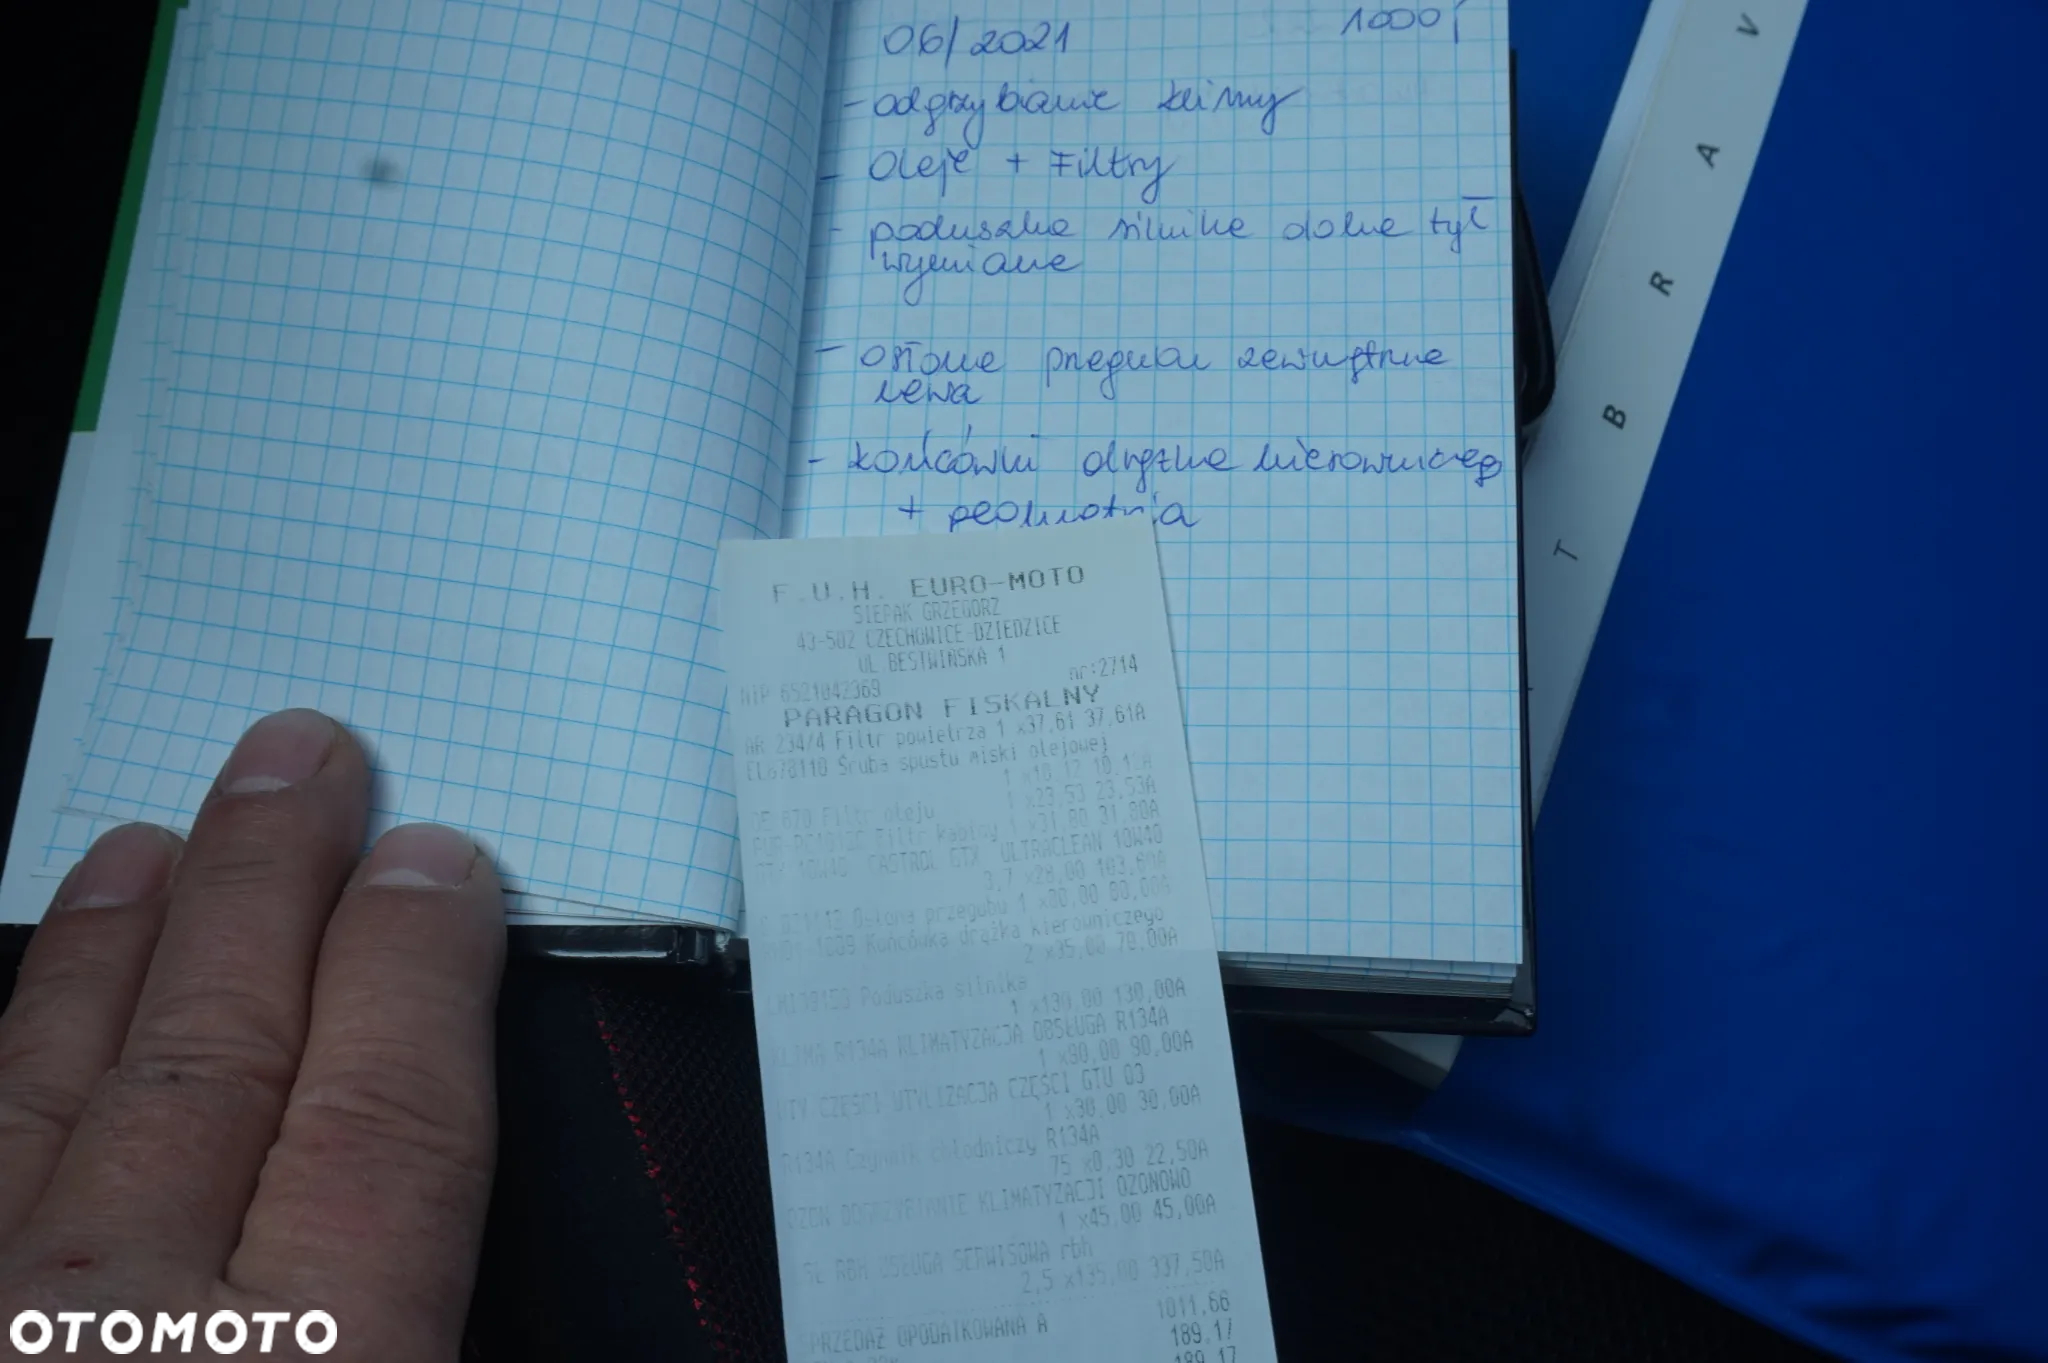 06/2021 1000
- odgrzybianie klimy
- oleje + Filtry
- poduszka silnika dolna tył
wymiana
- osłona przegubu zewnętrzna
lewa
- końcówki drążka kierowniczego
+ geometria
F.U.H. EURO-MOTO
SIEPAK GRZEGORZ
43-502 CZECHOWICE-DZIEDZICE
UL BESTWIŃSKA 1
NIP 6521042369 nr:2714
PARAGON FISKALNY
AR 234/4 Filtr powietrza 1 x37,61 37,61A
Śruba spustu miski olejowej
OE 670 Filtr oleju
1 x23,53 23,53A
Filtr kabiny 1 x31,80 31,80A
10W40 CASTROL GTX ULTRACLEAN 10W40
3,7 x28,00 103,60A
Osłona przegubu 1 x80,00 80,00A
Końcówka drążka kierowniczego
2 x35,00 70,00A
Poduszka silnika
1 x130,00 130,00A
KLIMA R134A KLIMATYZACJA OBSŁUGA R134A
1 x90,00 90,00A
UTY CZĘŚCI UTYLIZACJA CZĘŚCI GTU 03
1 x30,00 30,00A
R134A Czynnik chłodniczy R134A
75 x0,30 22,50A
OZON ODGRZYBIANIE KLIMATYZACJI OZONOWO
1 x45,00 45,00A
RBH USŁUGA SERWISOWA rbh
2,5 x135,00 337,50A
SPRZEDAŻ OPODATKOWANA A 1011,66
189,17
189,17
T B R A V
OTOMOTO